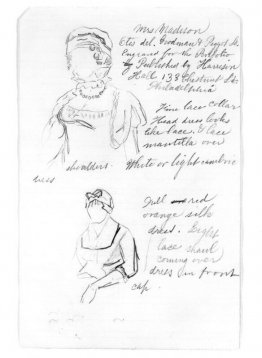 Mrs Madison
Otis del. Goodman & Piggot Sc.
Engraved for the Portfolio
by Published by Harrison
Hall 133 Chestnut St.
Philadelphia
Fine lace collar
Head dress looks
like lace. Lace
mantilla over
shoulders. White or light cambric
dress
Full red
orange silk
dress. Light
lace shawl
coming over
dress in front
cap